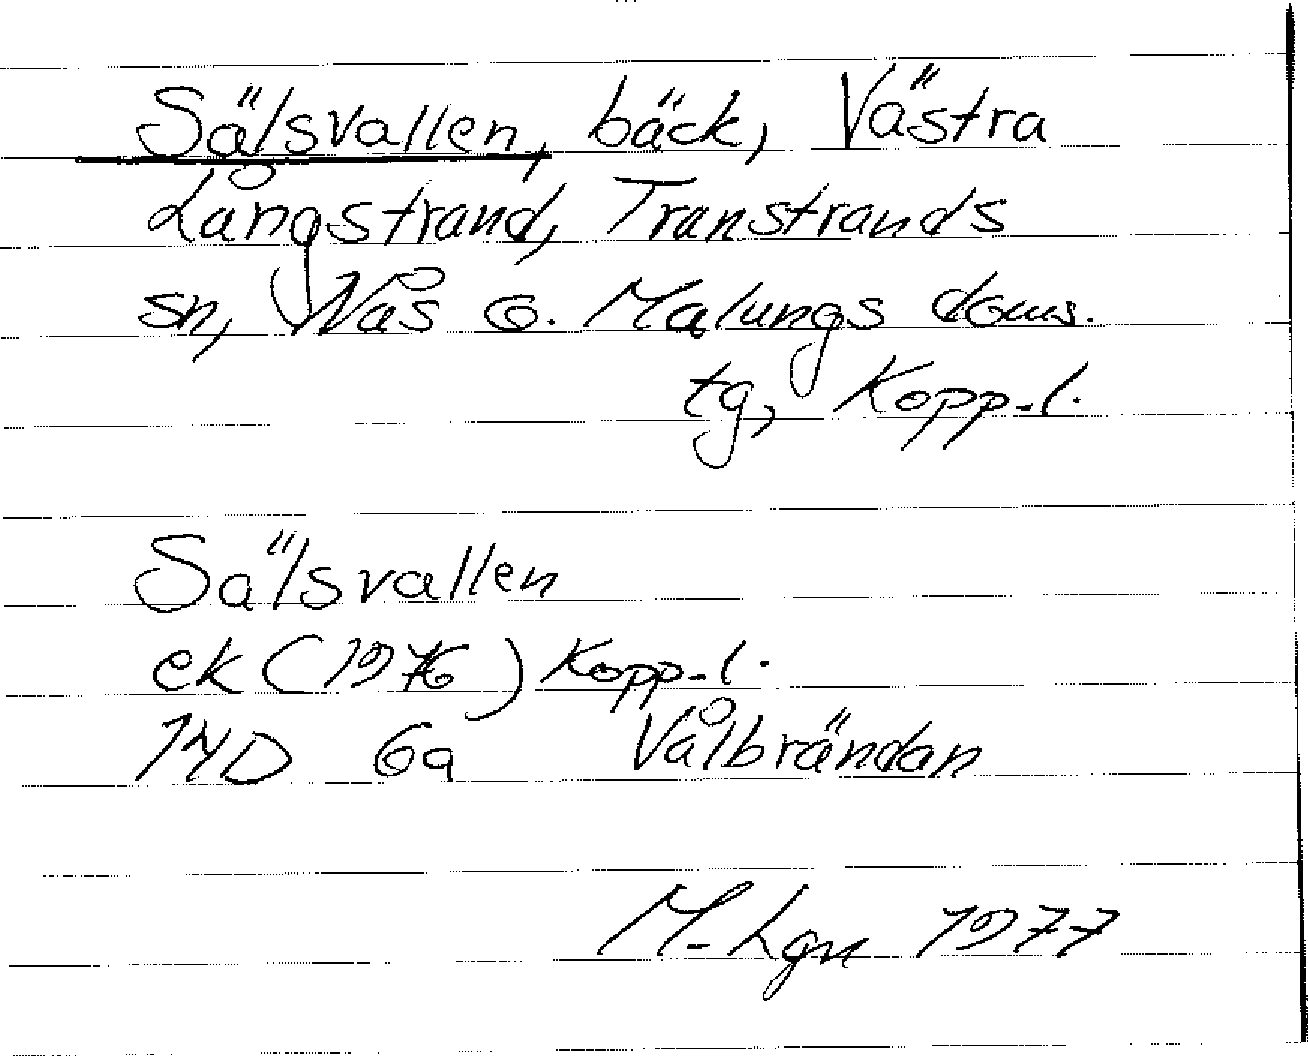 Sälsvallen, bäck, Västra
Långstrand, Transtrands
sn, Nås o. Malungs doms.
tg, Kopp.l.
Sälsvallen
ek (1976) Kopp.l.
14D 6a Vålbrändan
M. Lgn 1977